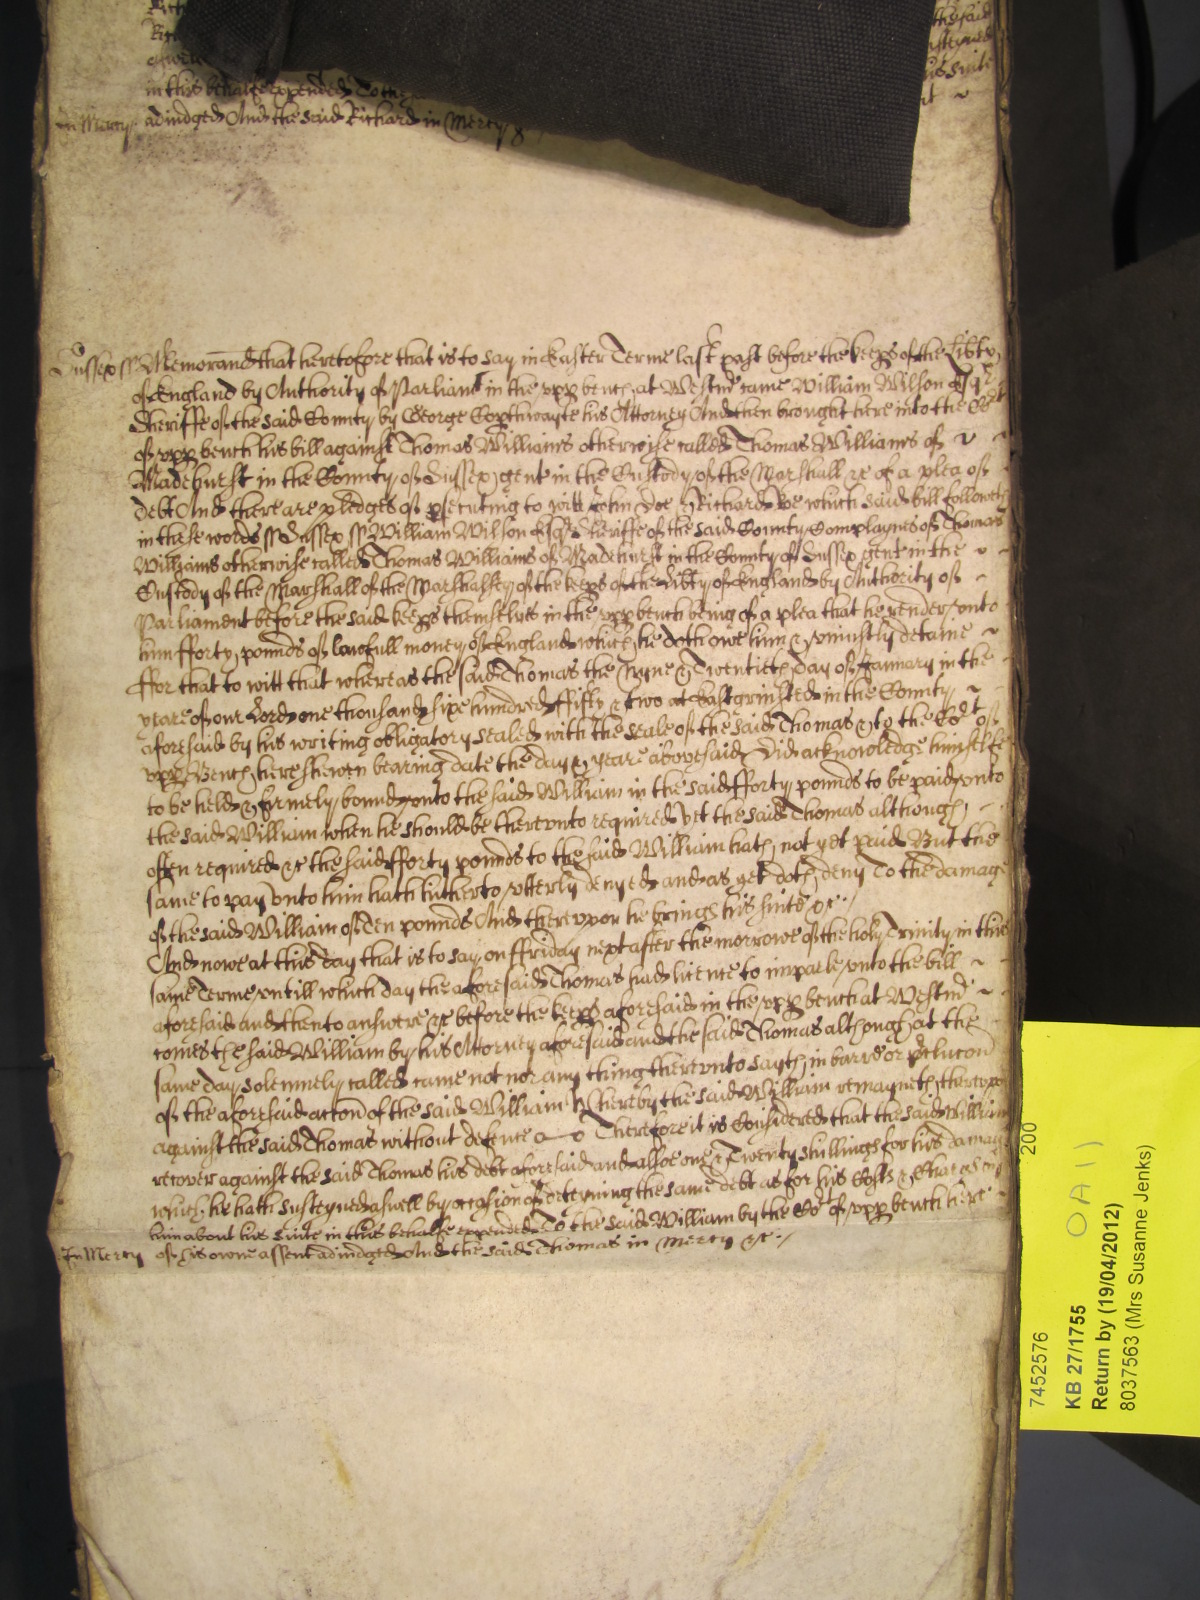 in this behalfe expended To the
In Mercy adiudged And the said Richard in Mercy &
Sussex ss Memorand that heretofore that is to say in Easter Terme last past before the keeps of the Libty
of England by Authority of Parliamt in the vpp bench at Westmr came William Wilson Esqr
Sheriffe of the said County by George Copthwayte his Attorney And then brought here into the Cort
of vpp bench his bill against Thomas Williams otherwise called Thomas Williams of
Madehurst in the County of Sussex gent in the Custody of the Marshall &c of a plea of
debt And there are pledges of psecuting to witt John Doe & Richard Roe which said bill followeth
in these words ss Sussex ss William Wilson Esqr Sheriffe of the said County Complaynes of Thomas
Williams otherwise called Thomas Williams of Madehurst in the County of Sussex gent in the
Custody of the Marshall of the Marshalsey of the keeps of the Libty of England by Authority of
Parliament before the said keeps themselves in the vpp bench being of a plea that he render vnto
him fforty pounds of lawfull money of England which he doth owe him & vniustly detaine
ffor that to witt that whereas the said Thomas the Nyne & Twentieth Day of January in the
yeare of our Lord one thousand six hundred ffifty & two at Eastgrinsted in the County
aforesaid by his writing obligatory sealed with the seale of the said Thomas & to the Cort of
vpp Bench here shewen bearing date the day & yeare abovesaid Did acknowledge himselfe
to be held & firmely bound vnto the said William in the said fforty pounds to be paid vnto
the said William when he should be therevnto required Yet the said Thomas although
often required &c the said fforty pounds to the said William hath not yet paid But the
same to pay vnto him hath hitherto vtterly denyed and as yet doth deny To the damage
of the said William of Ten pounds And therevpon he brings his suite &c
And nowe at this day that is to say on ffriday next after the morrowe of the holy Trinity in this
same Terme vntill which day the aforesaid Thomas had licence to imparle vnto the bill
aforesaid and then to answere &c before the keeps aforesaid in the vpp bench at Westmr
comes the said William by his Attorney aforesaid and the said Thomas although at the
same day solemnely called came not nor any thing therevnto sayth in barr or pclucon
of the aforesaid accon of the said William Whereby the said William remayneth therevpon
against the said Thomas without defence Therefore it is Considered that the said William
recover against the said Thomas his debt aforesaid and alsoe one & Twenty shillings for his damages
which he hath susteyned aswell by occasion of deteyning the same debt as for his Costs & Charges
him about his suite in this behalfe expended To the said William by the Cort of vpp bench here
In Mercy of his owne assent adiudged And the said Thomas in Mercy &c
7452576 200
KB 27/1755 OA1)
Return by (19/04/2012)
8037563 (Mrs Susanne Jenks)